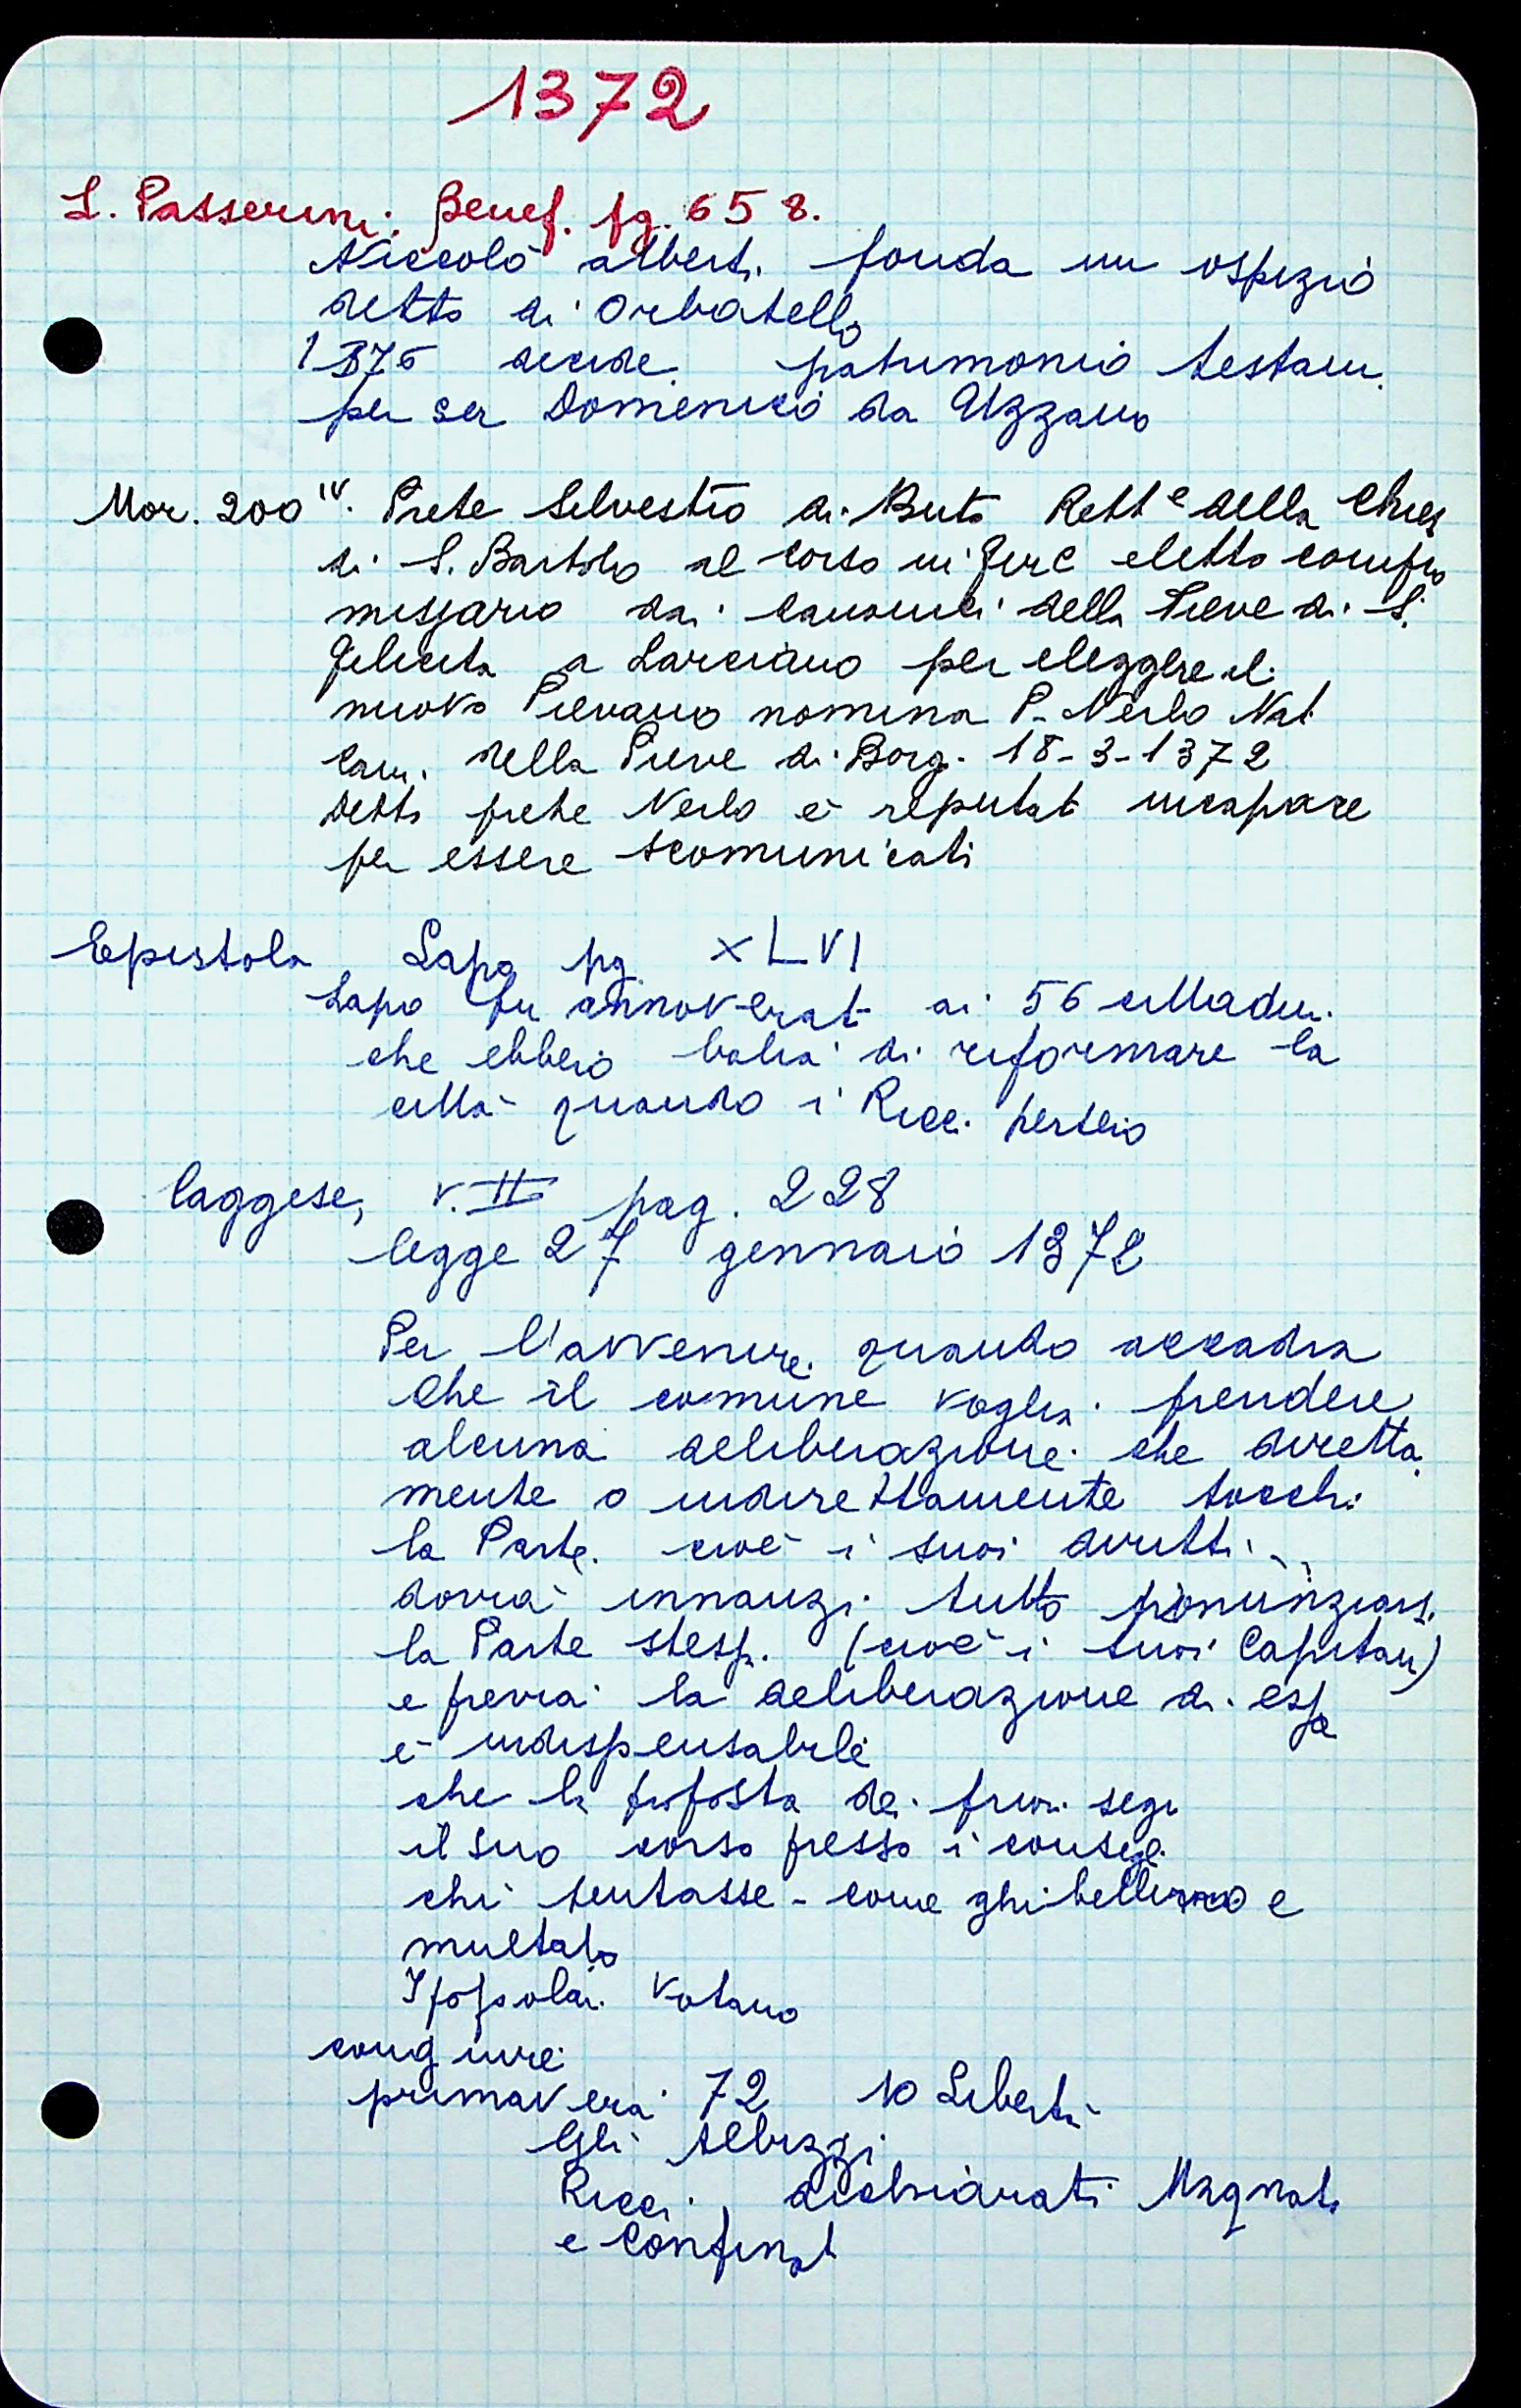 1372
L. Passerini. Benef. pg. 658.
Niccolò Alberti fonda un ospizio
detto di Orbatello
1376 decide. patrimonio testam.
per ser Domenico da Uzzano
Mor. 200 IV. Prete Selvestro di Buto Rett e della Chies
di S. Bartolo al Corso in Firc eletto compro
missario dai canonici della Pieve di S.
Felicita a Larciano per eleggere il
nuovo Pievano nomina P. Nerlo Nat
Can. della Pieve di Borg. 18-3-1372
detto prete Nerlo è reputat incapace
per essere scomunicati
Epistola Lapo pg. XLVI
Lapo fu annoverat ai 56 cittadin.
che ebbero balia di riformare la
città quando i Ricci
Caggese, v. II pag. 228
legge 27 gennaio 1372
Per l'avvenire. quando accadra
che il comune voglia prendere
alcuna deliberazione che diretta
mente o indirettamente tocchi
la Parte. cioè i suoi diritti..
dovrà innanzi tutto pronunziars.
la Parte stessa. (cioè i suoi Capitan)
e previa la deliberazione di essa
è indispensabile
che la proposta dei priori segu
il suo corso presso i consigl.
chi tentasse - come ghibellino e
multato
I popolari votano
congiure
primavera 72 10 Libertà
Gli Albizzi
Ricci, dichiarati Magnati
e Confinat